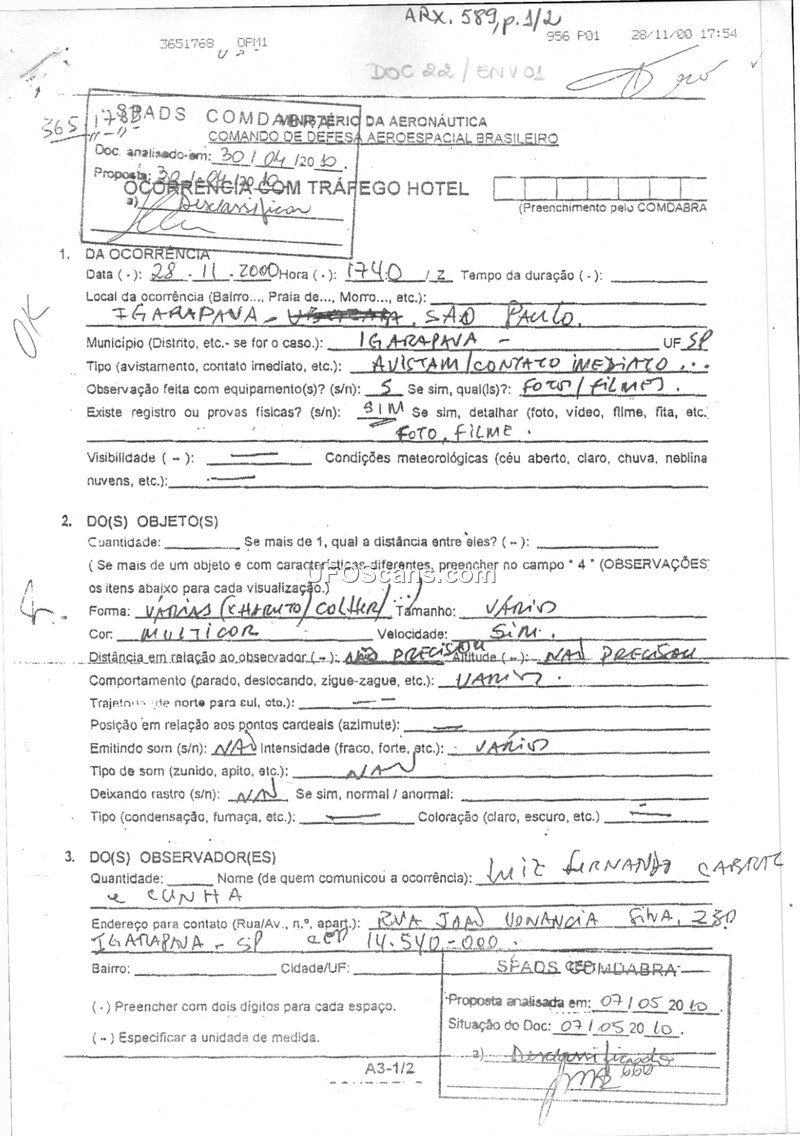 ARX. 589, p. 1/2
3651768 OPM1 956 P01 28/11/00 17:54
DOC 22 / ENV 01
SPADS COMDABRA
MINISTÉRIO DA AERONÁUTICA
COMANDO DE DEFESA AEROESPACIAL BRASILEIRO
Doc. analisado em: 30 / 04 /2010.
Proposta: 30 / 04 /2010
a) Desclassificar
OCORRÊNCIA COM TRÁFEGO HOTEL
(Preenchimento pelo COMDABRA
OK
1. DA OCORRÊNCIA
Data (·): 28 . 11 . 2000 Hora (·): 1740 / Z Tempo da duração (·):
Local da ocorrência (Bairro..., Praia de..., Morro..., etc.):
IGARAPAVA - SÃO PAULO.
Município (Distrito, etc.- se for o caso.): IGARAPAVA - UF SP
Tipo (avistamento, contato imediato, etc.): AVISTAM/CONTATO IMEDIATO ...
Observação feita com equipamento(s)? (s/n): S Se sim, qual(is)?: FOTOS/FILMES.
Existe registro ou provas físicas? (s/n): SIM Se sim, detalhar (foto, vídeo, filme, fita, etc.
FOTO, FILME.
Visibilidade (··): Condições meteorológicas (céu aberto, claro, chuva, neblina
nuvens, etc.):
2. DO(S) OBJETO(S)
Quantidade: Se mais de 1, qual a distância entre eles? (··):
( Se mais de um objeto e com características diferentes, preencher no campo " 4 " (OBSERVAÇÕES
os itens abaixo para cada visualização.)
UFOScans.com
Forma: VÁRIAS (CHARUTO/COLHER/...) Tamanho: VÁRIOS
Cor: MULTICOR Velocidade: SIM.
Distância em relação ao observador (··): NÃO PRECISOU Altitude (··): NÃO PRECISOU
Comportamento (parado, deslocando, zigue-zague, etc.): VÁRIOS.
Trajetória (de norte para sul, etc.):
Posição em relação aos pontos cardeais (azimute):
Emitindo som (s/n): NÃO Intensidade (fraco, forte, etc.): VÁRIOS
Tipo de som (zunido, apito, etc.): NÃO
Deixando rastro (s/n): NÃO Se sim, normal / anormal:
Tipo (condensação, fumaça, etc.): Coloração (claro, escuro, etc.)
3. DO(S) OBSERVADOR(ES)
Quantidade: Nome (de quem comunicou a ocorrência): LUIZ FERNANDO
E CUNHA
Endereço para contato (Rua/Av., n.º, apart.): RUA JOÃO VENANCIA SILVA, 230
IGARAPAVA - SP CEP 14.540-000.
Bairro: Cidade/UF: CEP:
SPADS COMDABRA
(·) Preencher com dois dígitos para cada espaço.
Proposta analisada em: 07 / 05 20 10.
Situação do Doc: 07 / 05 20 10.
(··) Especificar a unidade de medida.
a) Desclassificado
A3-1/2